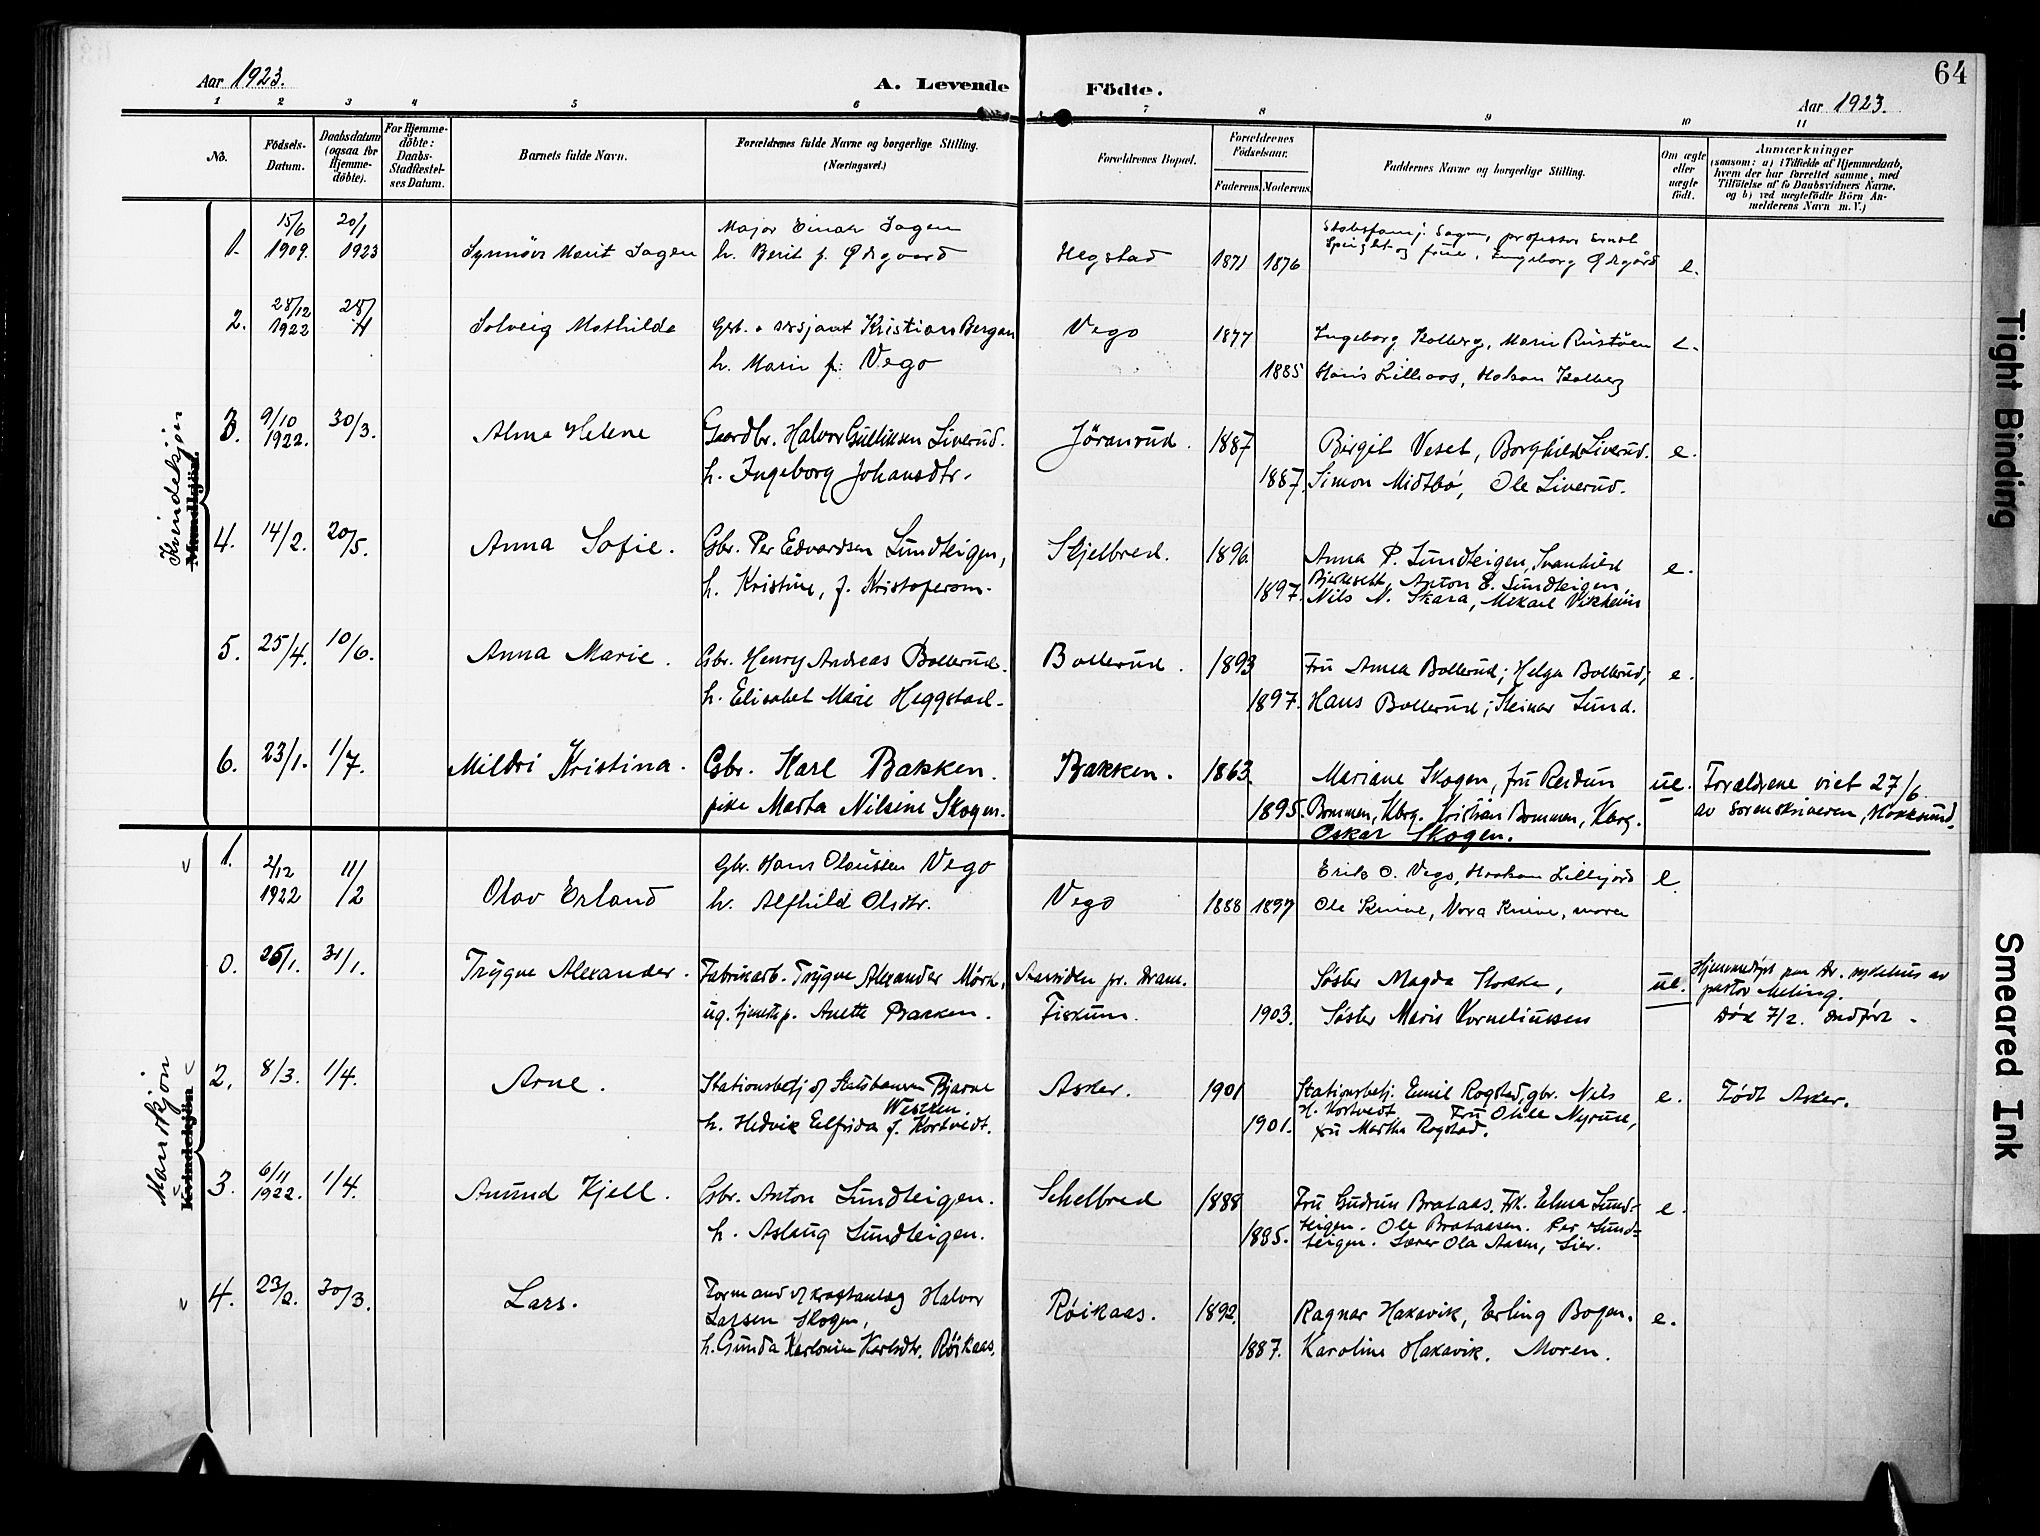 64
Aar 1923.
A. Levende Födte.
Aar 1923.
1 2 3 4 5 6 7 8 9 10 11
No.
Födsels-
Datum.
Daabsdatum
(ogsaa for
Hjemme-
döbte).
For Hjemme-
döbte:
Daabs-
Stadfæstel-
ses Datum.
Barnets fulde Navn.
Forældrenes fulde Navne og borgerlige Stilling.
(Næringsvei.)
Forældrenes Bopæl.
Forældrenes
Födselsaar.
Faderens.
Moderens.
Faddernes Navne og borgerlige Stilling.
Om ægte
eller
uægte
født.
Anmærkninger
(saasom: a) i Tilfælde af Hjemmedaab,
hvem der har forrettet samme, med
Tilföielse af to Daabsvidners Navne,
og b) ved uægtefödte Börn An-
melderens Navn m. V.)
Kvindekjøn
Mandkjön.
1.
15/6
1909.
20/1
1923
Synnöve Marit Sagen
Major Einar Sagen
h. Berit f. Ødegaard
Hegstad
1871 1876
Sagen, professor
og frue, Ingeborg Ødegård
e.
2.
28/12
1922
28/
Solveig Mathilde
Gbr. sersjant Kristian Bergan
h. Marie f. Vego
Vego
1877
1885
Ingeborg Kolberg, Marie Rustöen
Hans Lilleaas, Hakon Kolberg
e.
3.
9/10
1922.
30/3.
Alma Helene
Gaardbr. Halvor Gulliksen Liverud.
h. Ingeborg Johansdtr.
Jöranrud.
1887
1887.
Birgit Veset, Borghild Liverud.
Simon Midtbø, Ole Liverud.
e.
4.
14/2.
20/5.
Anna Sofie.
Gbr. Per Edvardsen Sundteigen,
h. Kristine, f. Kristofersen.
Skjelbred.
1896.
1897.
Anna P. Sundteigen, Svanhild
Bjerkesett, Anton E. Sundteigen,
Nils N. Skara, Mikael Vikheim
e.
5.
25/4.
10/6.
Anna Marie.
Gbr. Henry Andreas Bollerud.
h. Elisabet Marie Heggstad.
Bollerud.
1893
1897.
Fru Anna Bollerud; Helga Bollerud;
Hans Bollerud; Steinar Lund.
e.
6.
23/1.
1/7.
Mildri Kristina.
Gbr. Karl Bakken.
pike Marta Nilsine Skogen.
Bakken.
1863.
1895.
Mariane Skogen, fru Reidun
Bommen, Kbrg. Kristian Bommen, Kbrg.
Oskar Skogen.
ue.
Forældrene viet 27/6
av sorenskriveren, Hokksund.
Mandkjön
Kvindekjön
1.
2/12
1922
11/
/2
Olav Erland
Gbr. Hans Olaussen Vego
h. Alfhild Olsdtr.
Vego
1888 1897
Erik O. Vego, Haakon Lillejord
Ole Knive, Nora Knive, moren
e.
0.
25/1.
31/1.
Trygve Alexander.
Fabrikarb. Trygve Alexander Mörk,
ug. tjenestep. Anette Bakken.
pr. Dram.
Fiskum.
1903.
Søster Magda Stokke,
Søster Marie Korneliussen
ue.
Hjemmedøpt paa Dr. sykehus av
pastor Meling.
Död 7/2.
2.
8/3.
1/4.
Arne.
Stationsbetj. v/ Statsbanen Bjarne
Wessen.
h. Hedvik Elfrida f. Kortvedt.
Asker.
1901
1901.
Stationsbetj. Emil Rogstad, gbr. Nils
H. Kortvedt. Fru Otilie Nyruse,
fru Martha Rogstad.
e.
Födt Asker.
3.
6/11
1922.
1/4.
Amund Kjell.
Gbr. Anton Sundteigen.
h. Aslaug Sundteigen.
Skelbred
1888
1895.
Fru Gudrun Brataas. Frk. Elma Sund-
teigen. Ole Brataasen. Per Sund-
teigen. Lærer Ola Aasen, Lier.
e.
4.
23/2.
30/3.
Lars.
Formand v/ kraftanlæg Halvor
Larsen Skogen,
h. Gunda Karlonine Karlsdtr. Røikaas.
Røikaas.
1892.
1887.
Ragnar Hakavik, Erling Bogen.
Karoline Hakavik. Moren.
e.
Tight Binding
Smeared Ink